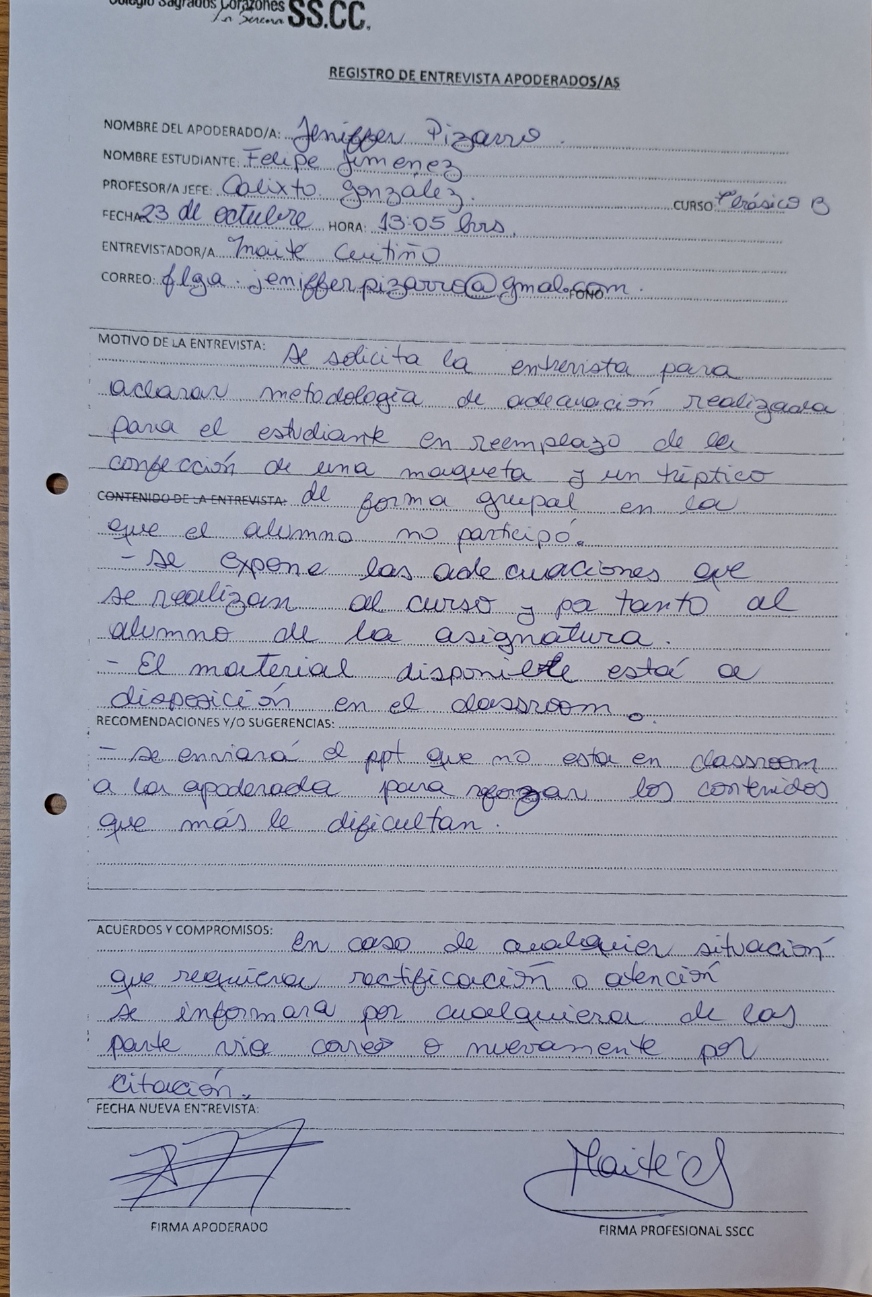 Colegio Sagrados Corazones
La Serena SS.CC.
REGISTRO DE ENTREVISTA APODERADOS/AS
NOMBRE DEL APODERADO/A: Jeniffer Pizarro.
NOMBRE ESTUDIANTE: Felipe Jimenez
PROFESOR/A JEFE: Calixto Gonzalez. CURSO: B
FECHA: 23 de octubre HORA: 13:05 hrs.
ENTREVISTADOR/A Maite
CORREO: flga.jenifferpizarro@gmal.com. FONO:
MOTIVO DE LA ENTREVISTA: Se solicita la entrevista para
aclarar metodología de adecuación realizada
para el estudiante en reemplazo de la
confección de una maqueta y un tríptico
CONTENIDO DE LA ENTREVISTA: de forma grupal en la
que el alumno no participó.
- Se expone las adecuaciones que
se realizan al curso y por tanto al
alumno de la asignatura.
- El material disponible está a
disposición en el classroom.
RECOMENDACIONES Y/O SUGERENCIAS:
- Se enviará el ppt que no esta en classroom
a la apoderada para reforzar los contenidos
que más le dificultan.
ACUERDOS Y COMPROMISOS: En caso de cualquier situación
que requiera rectificación o atención
se informara por cualquiera de las
parte via correo o nuevamente por
citación.
FECHA NUEVA ENTREVISTA:
Maite
FIRMA APODERADO
FIRMA PROFESIONAL SSCC